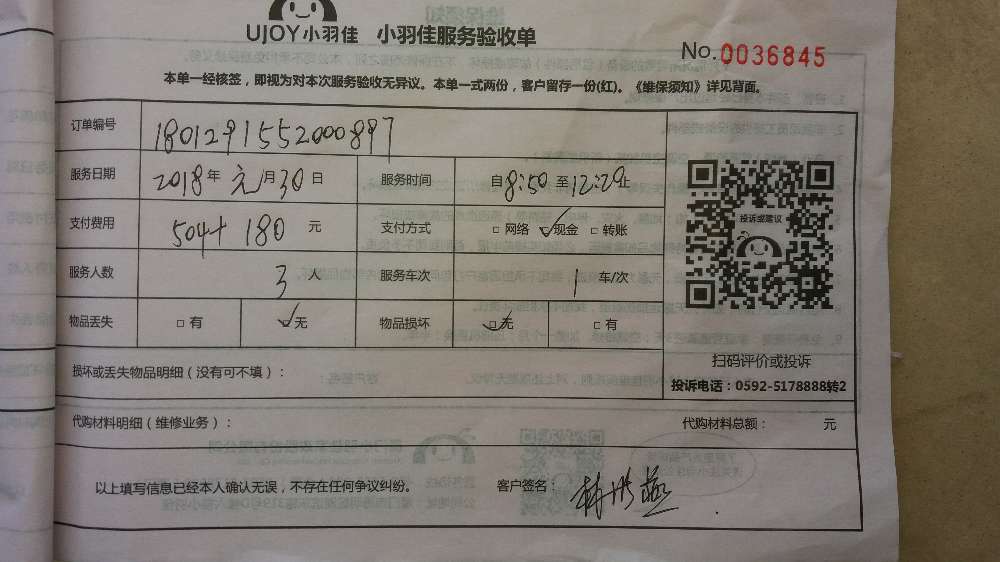 UJOY小羽佳 小羽佳服务验收单
No. 0036845
本单一经核签，即视为对本次服务验收无异议。本单一式两份，客户留存一份(红)。《维保须知》详见背面。
订单编号 1801291552000897
服务日期 2018年元月30日 服务时间 自8:50至12:20止
支付费用 504+180元 支付方式 □网络 ☑现金 □转账
服务人数 3人 服务车次 1车/次
物品丢失 □有 ☑无 物品损坏 ☑无 □有
投诉或建议
扫码评价或投诉
投诉电话：0592-5178888转2
损坏或丢失物品明细（没有可不填）：
代购材料明细（维修业务）： 代购材料总额： 元
以上填写信息已经本人确认无误，不存在任何争议纠纷。 客户签名：